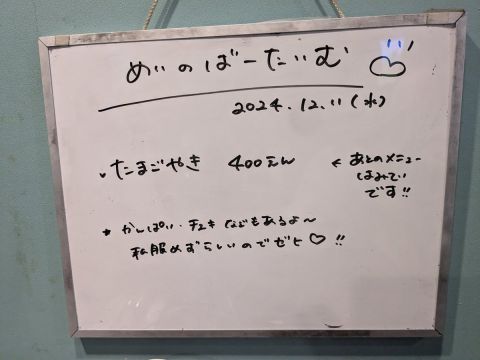 めいのばーたいむ
2024.12.11(水)
・たまごやき 400えん
← あとのメニュー
はみてい
です!!
* かんぱい・チェキなどもあるよ〜
私服めずらしいのでぜひ♡!!